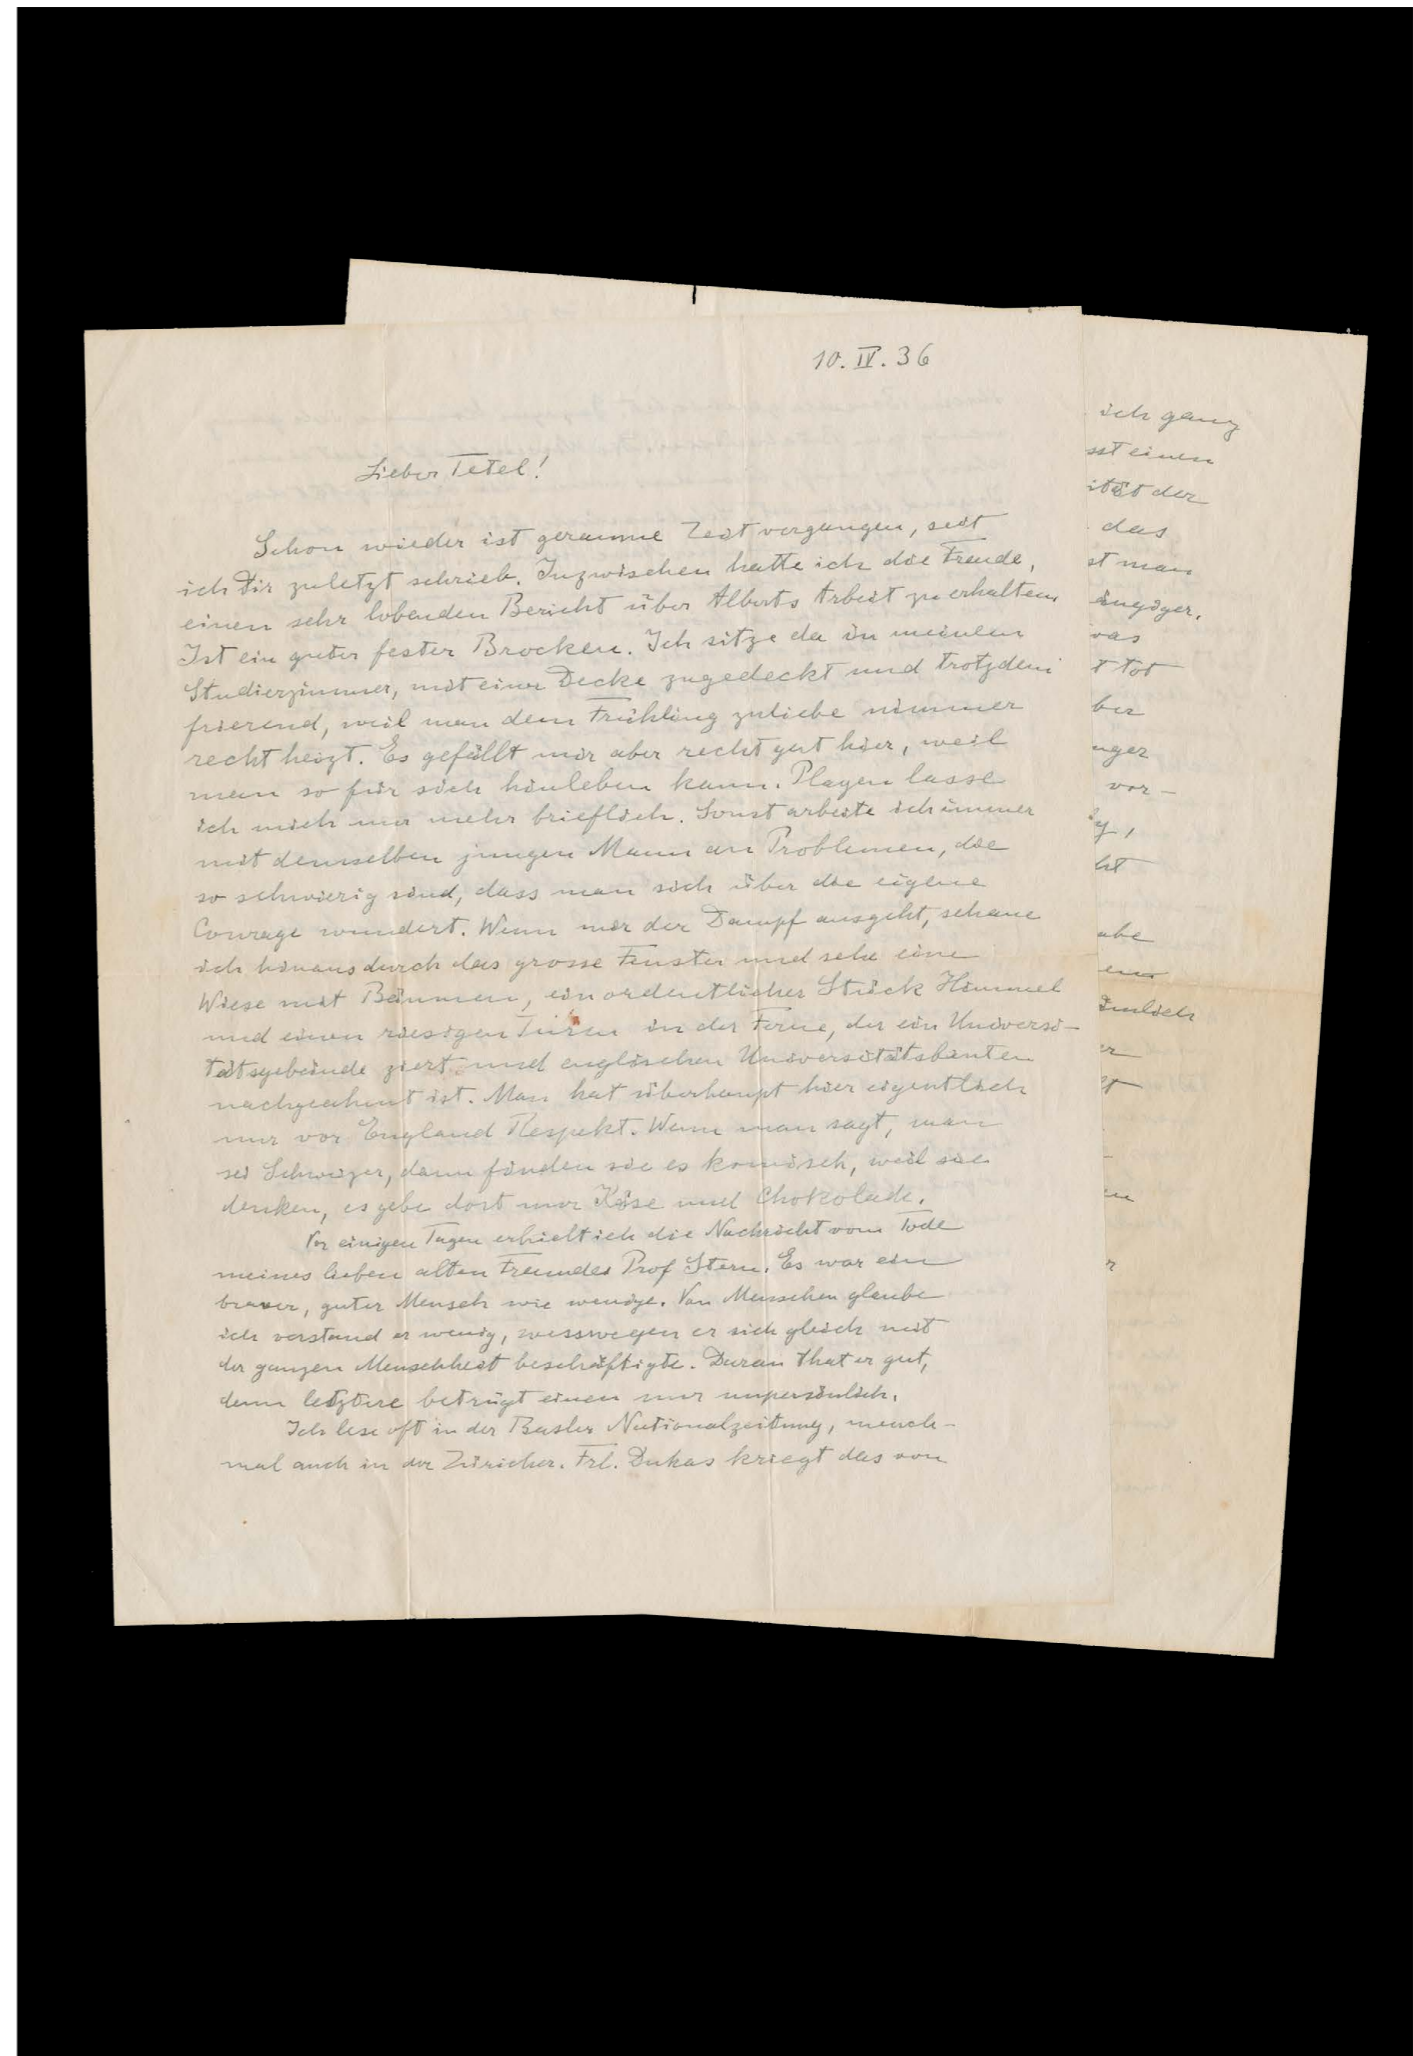 10. IV. 36
Lieber Tetel!
Schon wieder ist geraume Zeit vergangen, seit
ich Dir zuletzt schrieb. Inzwischen hatte ich die Freude,
einen sehr lobenden Bericht über Alberts Arbeit zu erhalten.
Ist ein guter fester Brocken. Ich sitze da in meinem
Studierzimmer, mit einer Decke zugedeckt und trotzdem
frierend, weil man dem Frühling zuliebe nimmer
recht heizt. Es gefällt mir aber recht gut hier, weil
man so für sich hinleben kann. Plagen lasse
ich mich nur mehr brieflich. Sonst arbeite ich immer
mit demselben jungen Mann an Problemen, die
so schwierig sind, dass man sich über die eigene
Courage wundert. Wenn mir der Dampf ausgeht, schaue
ich hinaus durch das grosse Fenster und sehe eine
Wiese mit Bäumen, ein ordentliches Stück Himmel
und einen riesigen Turm in der Ferne, der ein Universi-
tätsgebäude ziert und englischen Universitätsbauten
nachgeahmt ist. Man hat überhaupt hier eigentlich
nur vor England Respekt. Wenn man sagt, man
sei Schweizer, dann finden sie es komisch, weil sie
denken, es gebe dort nur Käse und Chokolade.
Vor einigen Tagen erhielt ich die Nachricht vom Tode
meines lieben alten Freundes Prof Stern. Es war ein
braver, guter Mensch wie wenige. Von Menschen glaube
ich verstand er wenig, wesswegen er sich gleich mit
der ganzen Menschheit beschäftigte. Daran that er gut,
denn letztere betrügt einen nur unpersönlich.
Ich lese oft in der Basler Nationalzeitung, manch-
mal auch in der Züricher. Frl. Dukas kriegt das von
ich ganz
sst einen
ität der
das
st man
ängiger.
was
t tot
ber
nger
vor-
ht
abe
en
ömlich
er
en